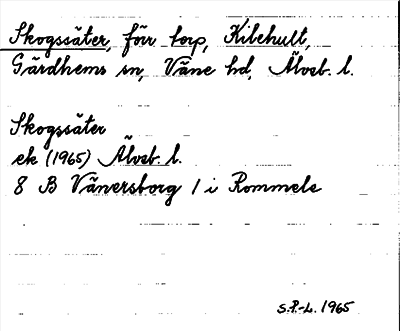 Skogssäter, förr torp, Kilehult,
Gärdhems sn, Väne hd, Älvsb. l.
Skogssäter
ek (1965) Älvsb. l.
8 B Vänersborg 1 i Rommele
S.P.-L. 1965